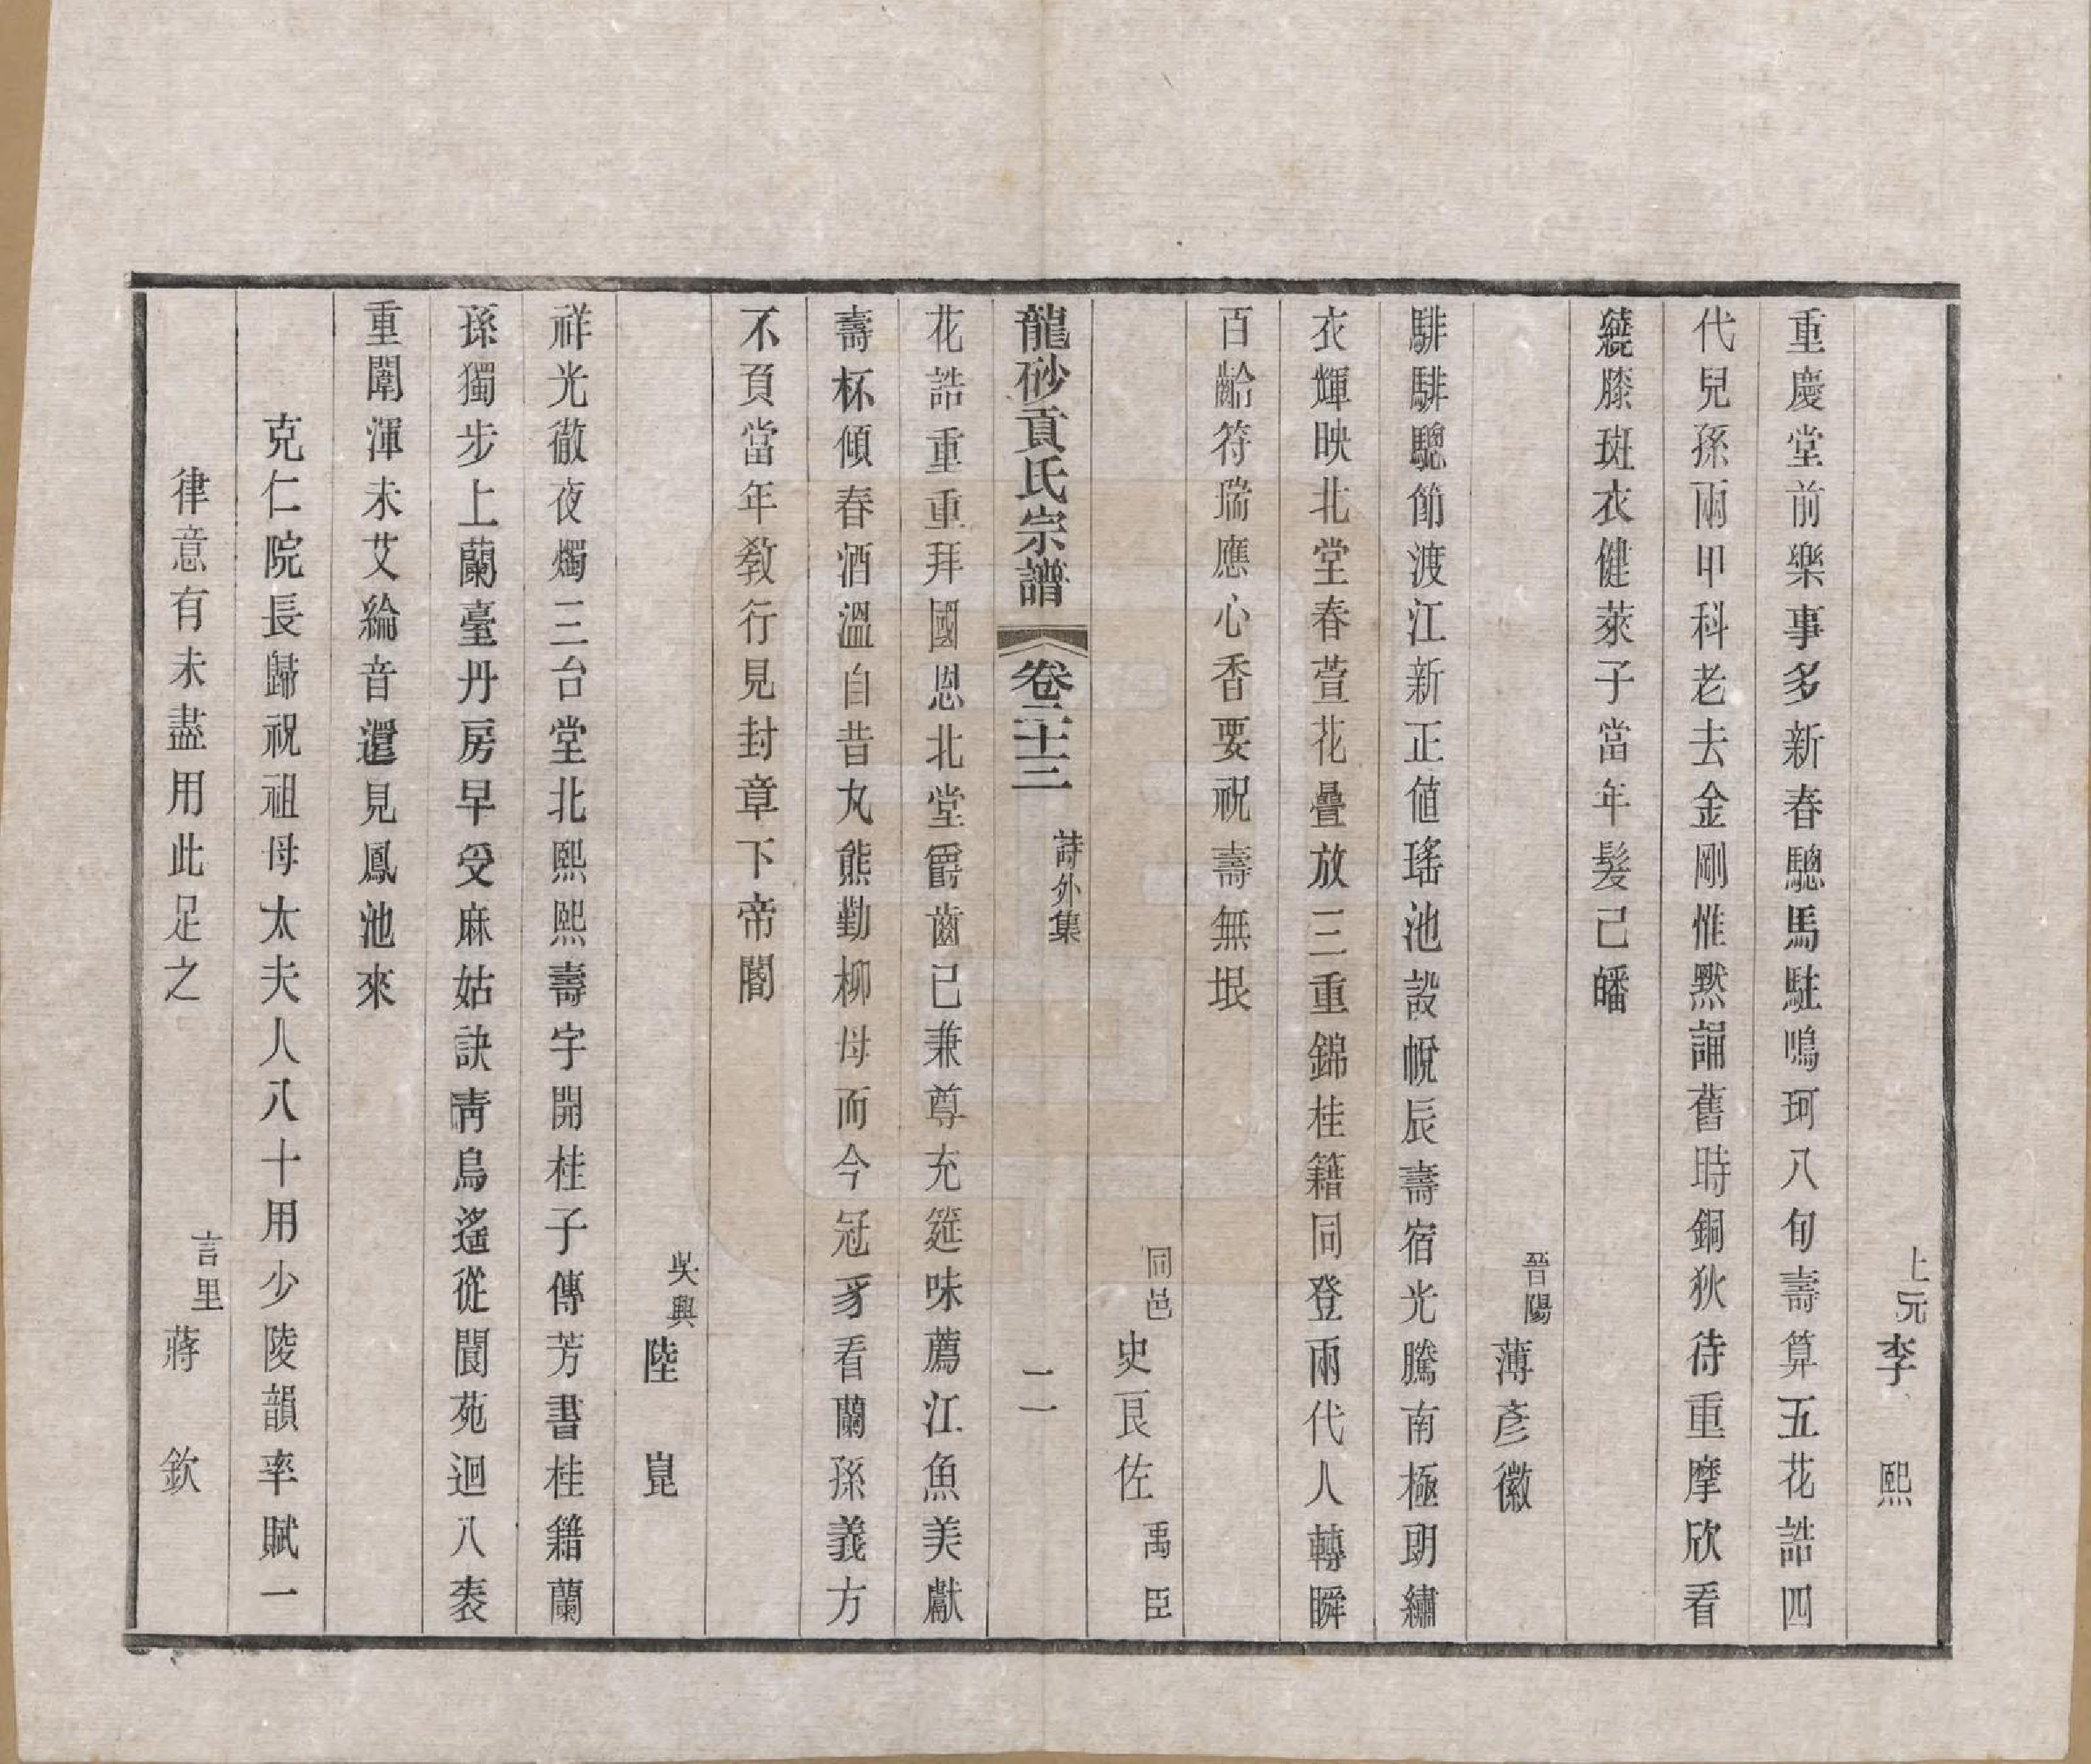 上元李熙
重慶堂前樂事多新春驄馬駐鳴珂八旬壽算五花誥四
代兒孫兩甲科老去金剛惟默誦舊時銅狄待重摩欣看
繞膝斑衣健萊子當年髮已皤
晉陽薄彥徽
騑騑驄節渡江新正値瑤池設帨辰壽宿光騰南極朗繡
衣輝映北堂春萱花疊放三重錦桂籍同登兩代人轉瞬
百齡符瑞應心香要祝壽無垠
同邑史良佐禹臣
龍砂貢氏宗譜 卷二十三 詩外集 二
花誥重重拜國恩北堂爵齒已兼尊充筵味薦江魚美獻
壽杯傾春酒溫自昔丸熊勤柳母而今冠豸看蘭孫義方
不負當年敎行見封章下帝閽
吳興陸崑
祥光徹夜燭三台堂北熙熙壽宇開桂子傳芳書桂籍蘭
孫獨步上蘭臺丹房早受麻姑訣靑鳥遙從閬苑迴八袠
重闈渾未艾綸音還見鳳池來
克仁院長歸祝祖母太夫人八十用少陵韻率賦一
律意有未盡用此足之 言里蔣欽